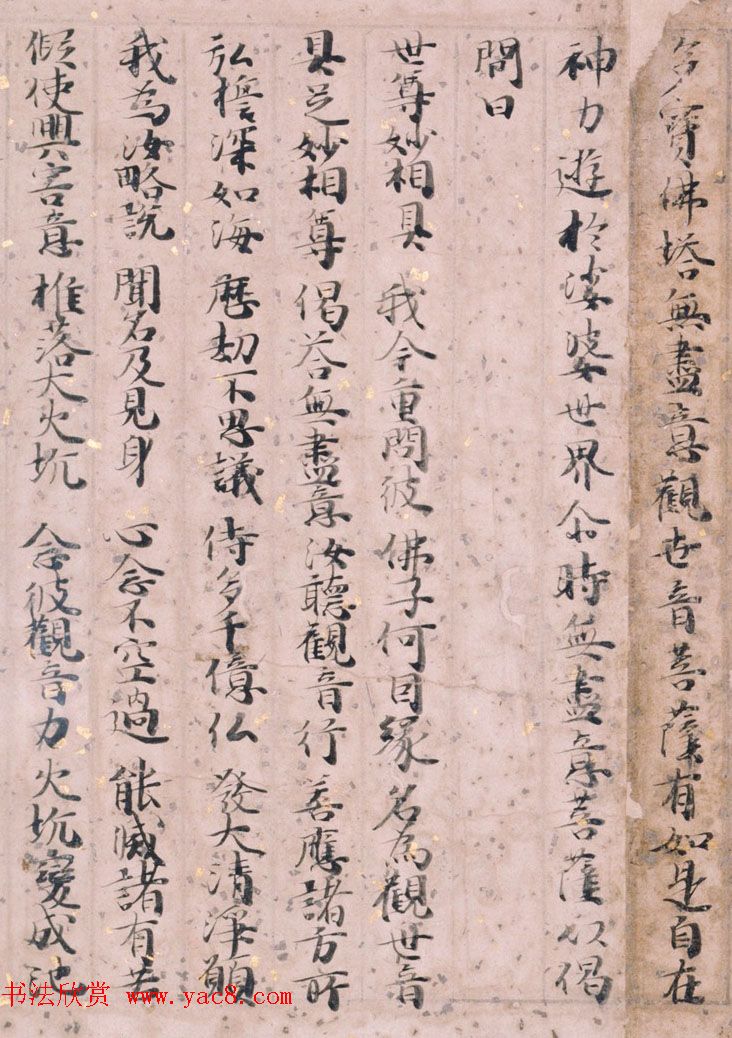 多寶佛塔無盡意觀世音菩薩有如是自在
神力遊於娑婆世界尒時無盡意菩薩以偈
問曰
世尊妙相具 我今重問彼 佛子何因緣 名為觀世音
具足妙相尊 偈荅無盡意 汝聽觀音行 善應諸方所
弘擔深如海 歷劫不思議 侍多千億仏 發大清淨願
我為汝略說 聞名及見身 心念不空過 能滅諸有苦
假使興害意 推落大火坑 念彼觀音力 火坑變成池
书法欣赏 www.yac8.com